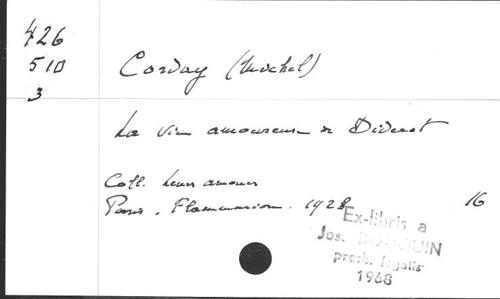 426
510
3
Corday (Michel)
La vie amoureuse de Diderot
Coll. Leurs amours
Paris, Flammarion. 1928 16
Ex-libris a
Jos.
presb.
1968